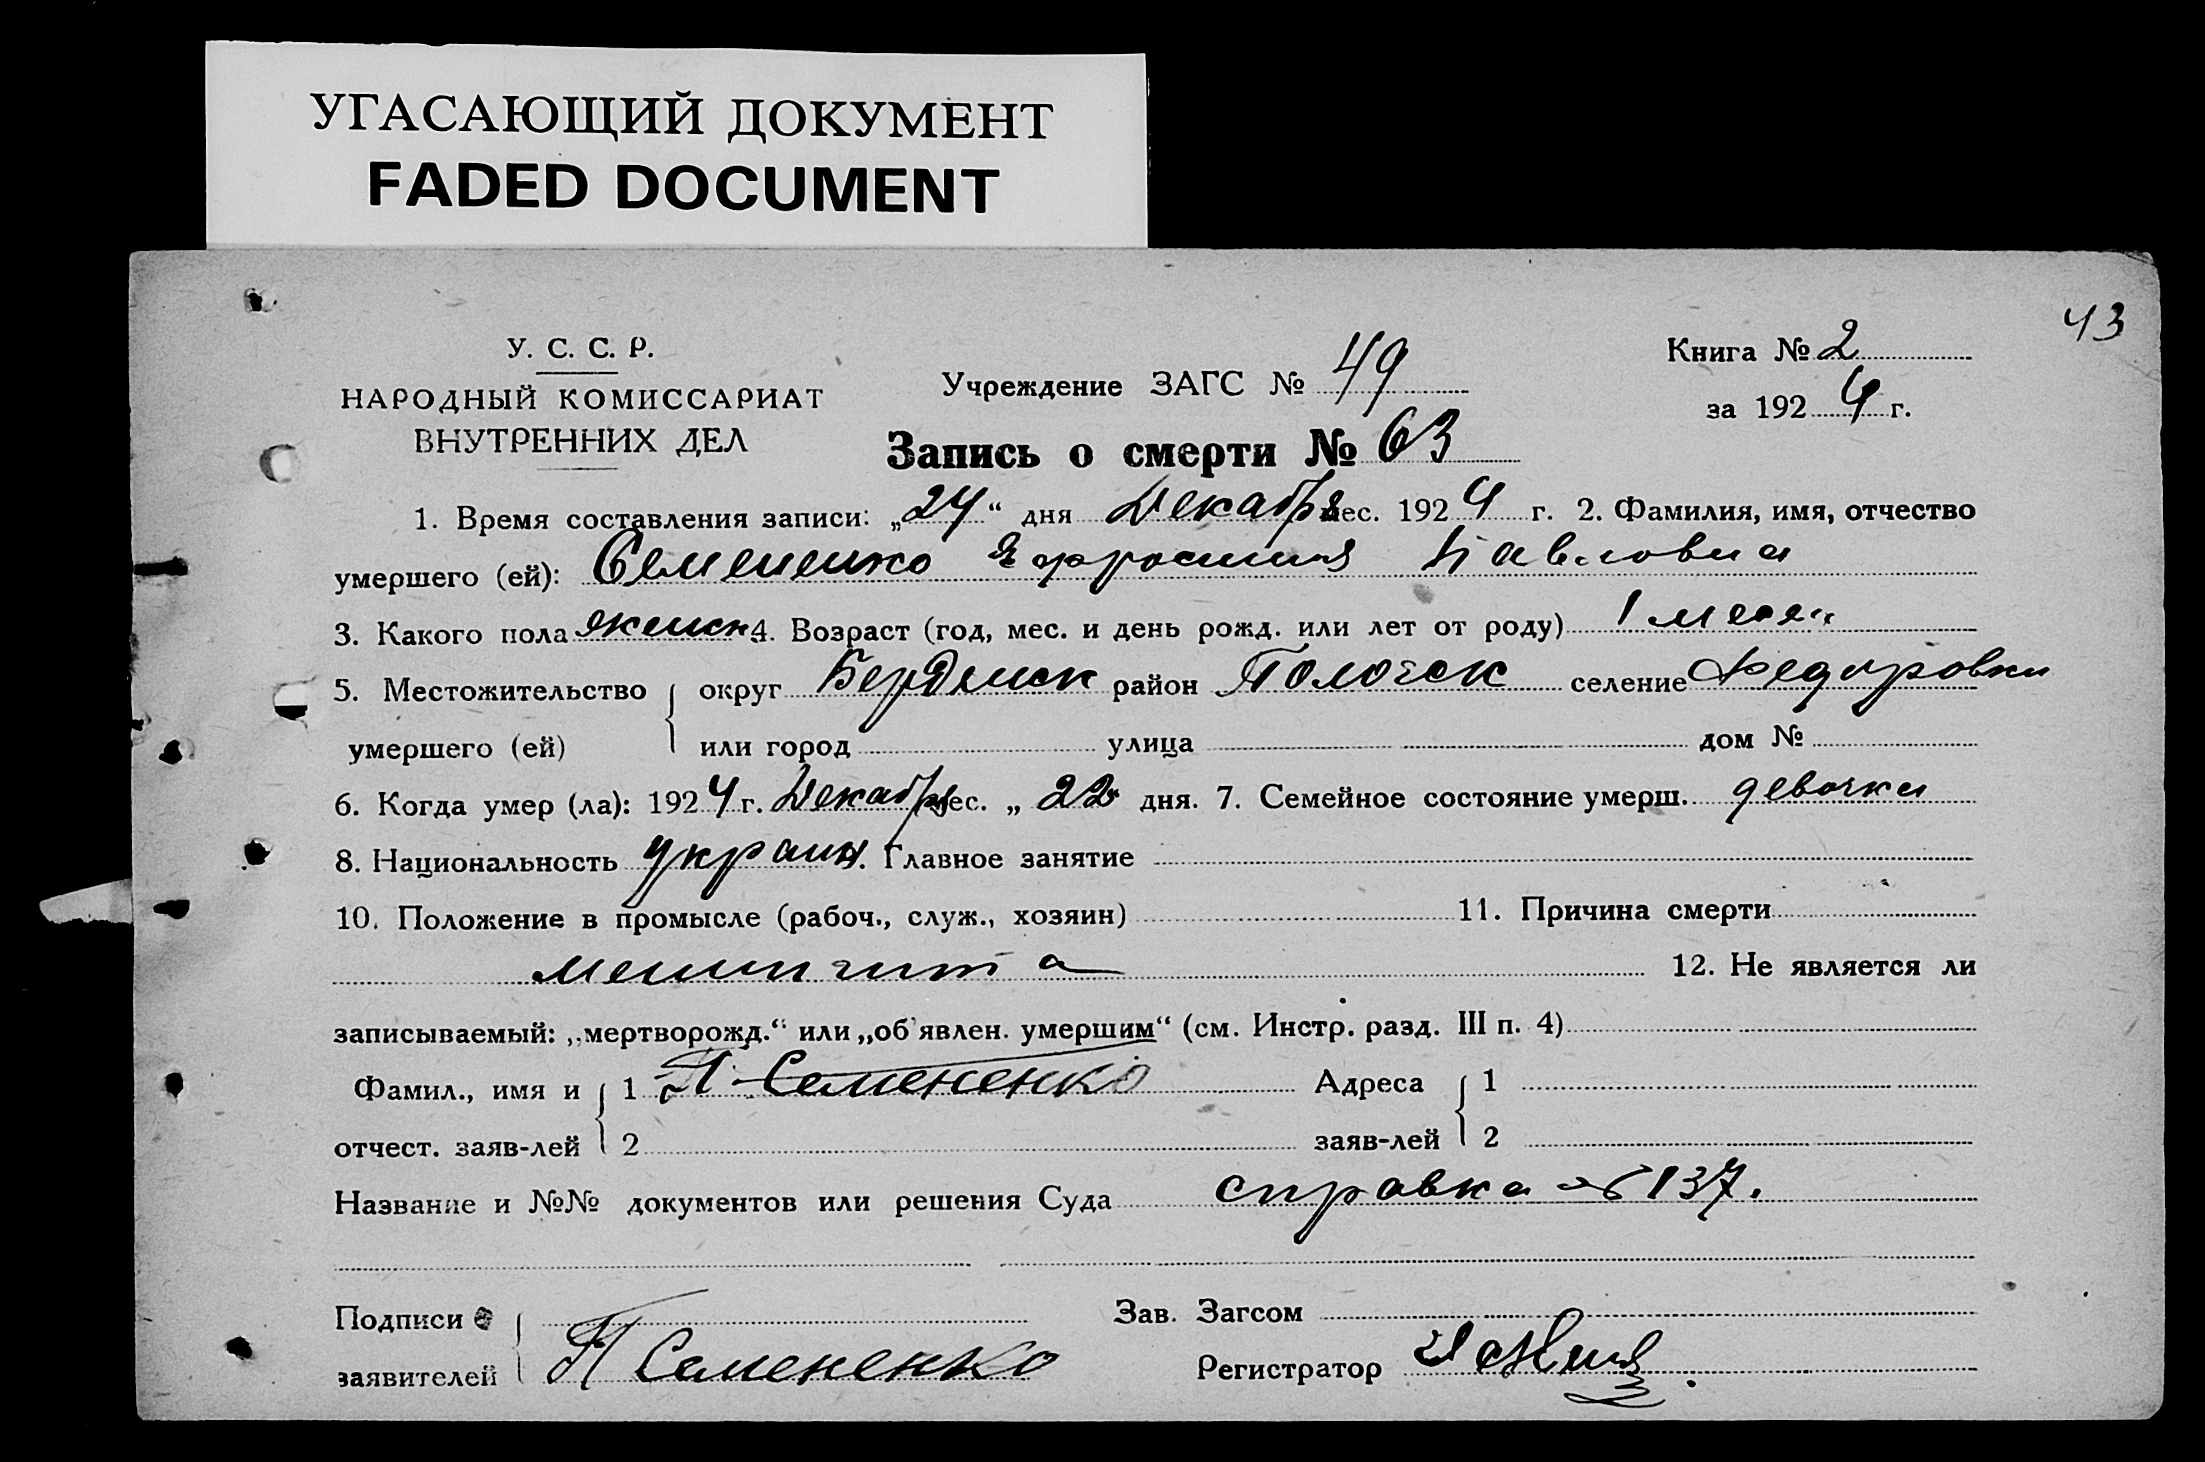 УГАСАЮЩИЙ ДОКУМЕНТ
FADED DOCUMENT
43
У. С. С. Р.
НАРОДНЫЙ КОМИССАРИАТ
ВНУТРЕННИХ ДЕЛ
Учреждение ЗАГС № 49
Книга № 2
за 1924 г.
Запись о смерти № 63
1. Время составления записи: „24“ дня Декабря мес. 1924 г. 2. Фамилия, имя, отчество
умершего (ей): Семененко Ефросиния Павловна
3. Какого пола женск 4. Возраст (год, мес. и день рожд. или лет от роду) 1 месяц
5. Местожительство округ Бердянск район Пологск селение Федоровки
умершего (ей) или город улица дом №
6. Когда умер (ла): 1924 г. Декабря мес. „ 22 дня. 7. Семейное состояние умерш. девочка
8. Национальность украин. Главное занятие
10. Положение в промысле (рабоч., служ., хозяин) 11. Причина смерти
менингита 12. Не является ли
записываемый: „мертворожд.“ или „об'явлен. умершим“ (см. Инстр. разд. III п. 4)
Фамил., имя и 1 П Семененко Адреса 1
отчест. заяв-лей 2 заяв-лей 2
Название и №№ документов или решения Суда справка 137.
Подписи Зав. Загсом
заявителей П Семененко Регистратор